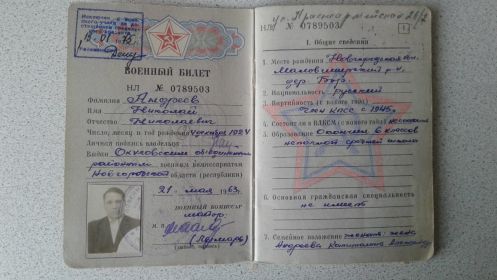 Исключен с воинского
учета
19 01 1975
ул. Красноармейская 26/2
НЛ № 0789503
1
ВОЕННЫЙ БИЛЕТ
НЛ № 0789503
Фамилия Андреев
Имя Николай
Отчество Николаевич
Число, месяц и год рождения 4 декабря 1924
Личная подпись владельца
Выдан Окуловским объединенным
районным военным комиссариатом
Новгородской области (республики)
21 мая 1963 г.
ВОЕННЫЙ КОМИССАР
майор
М. П.
I. Общие сведения
1. Место рождения Новгородская обл.
Маловишерский р-н
дер.
2. Национальность русский
3. Партийность (с какого года)
член КПСС с 1945 г.
4. Состоял ли в ВЛКСМ (с какого года) не состоял
3. Образование Окончил 6 классов
неполной средней школы
6. Основная гражданская специальность
не имеет
7. Семейное положение женат: жена
Андреева